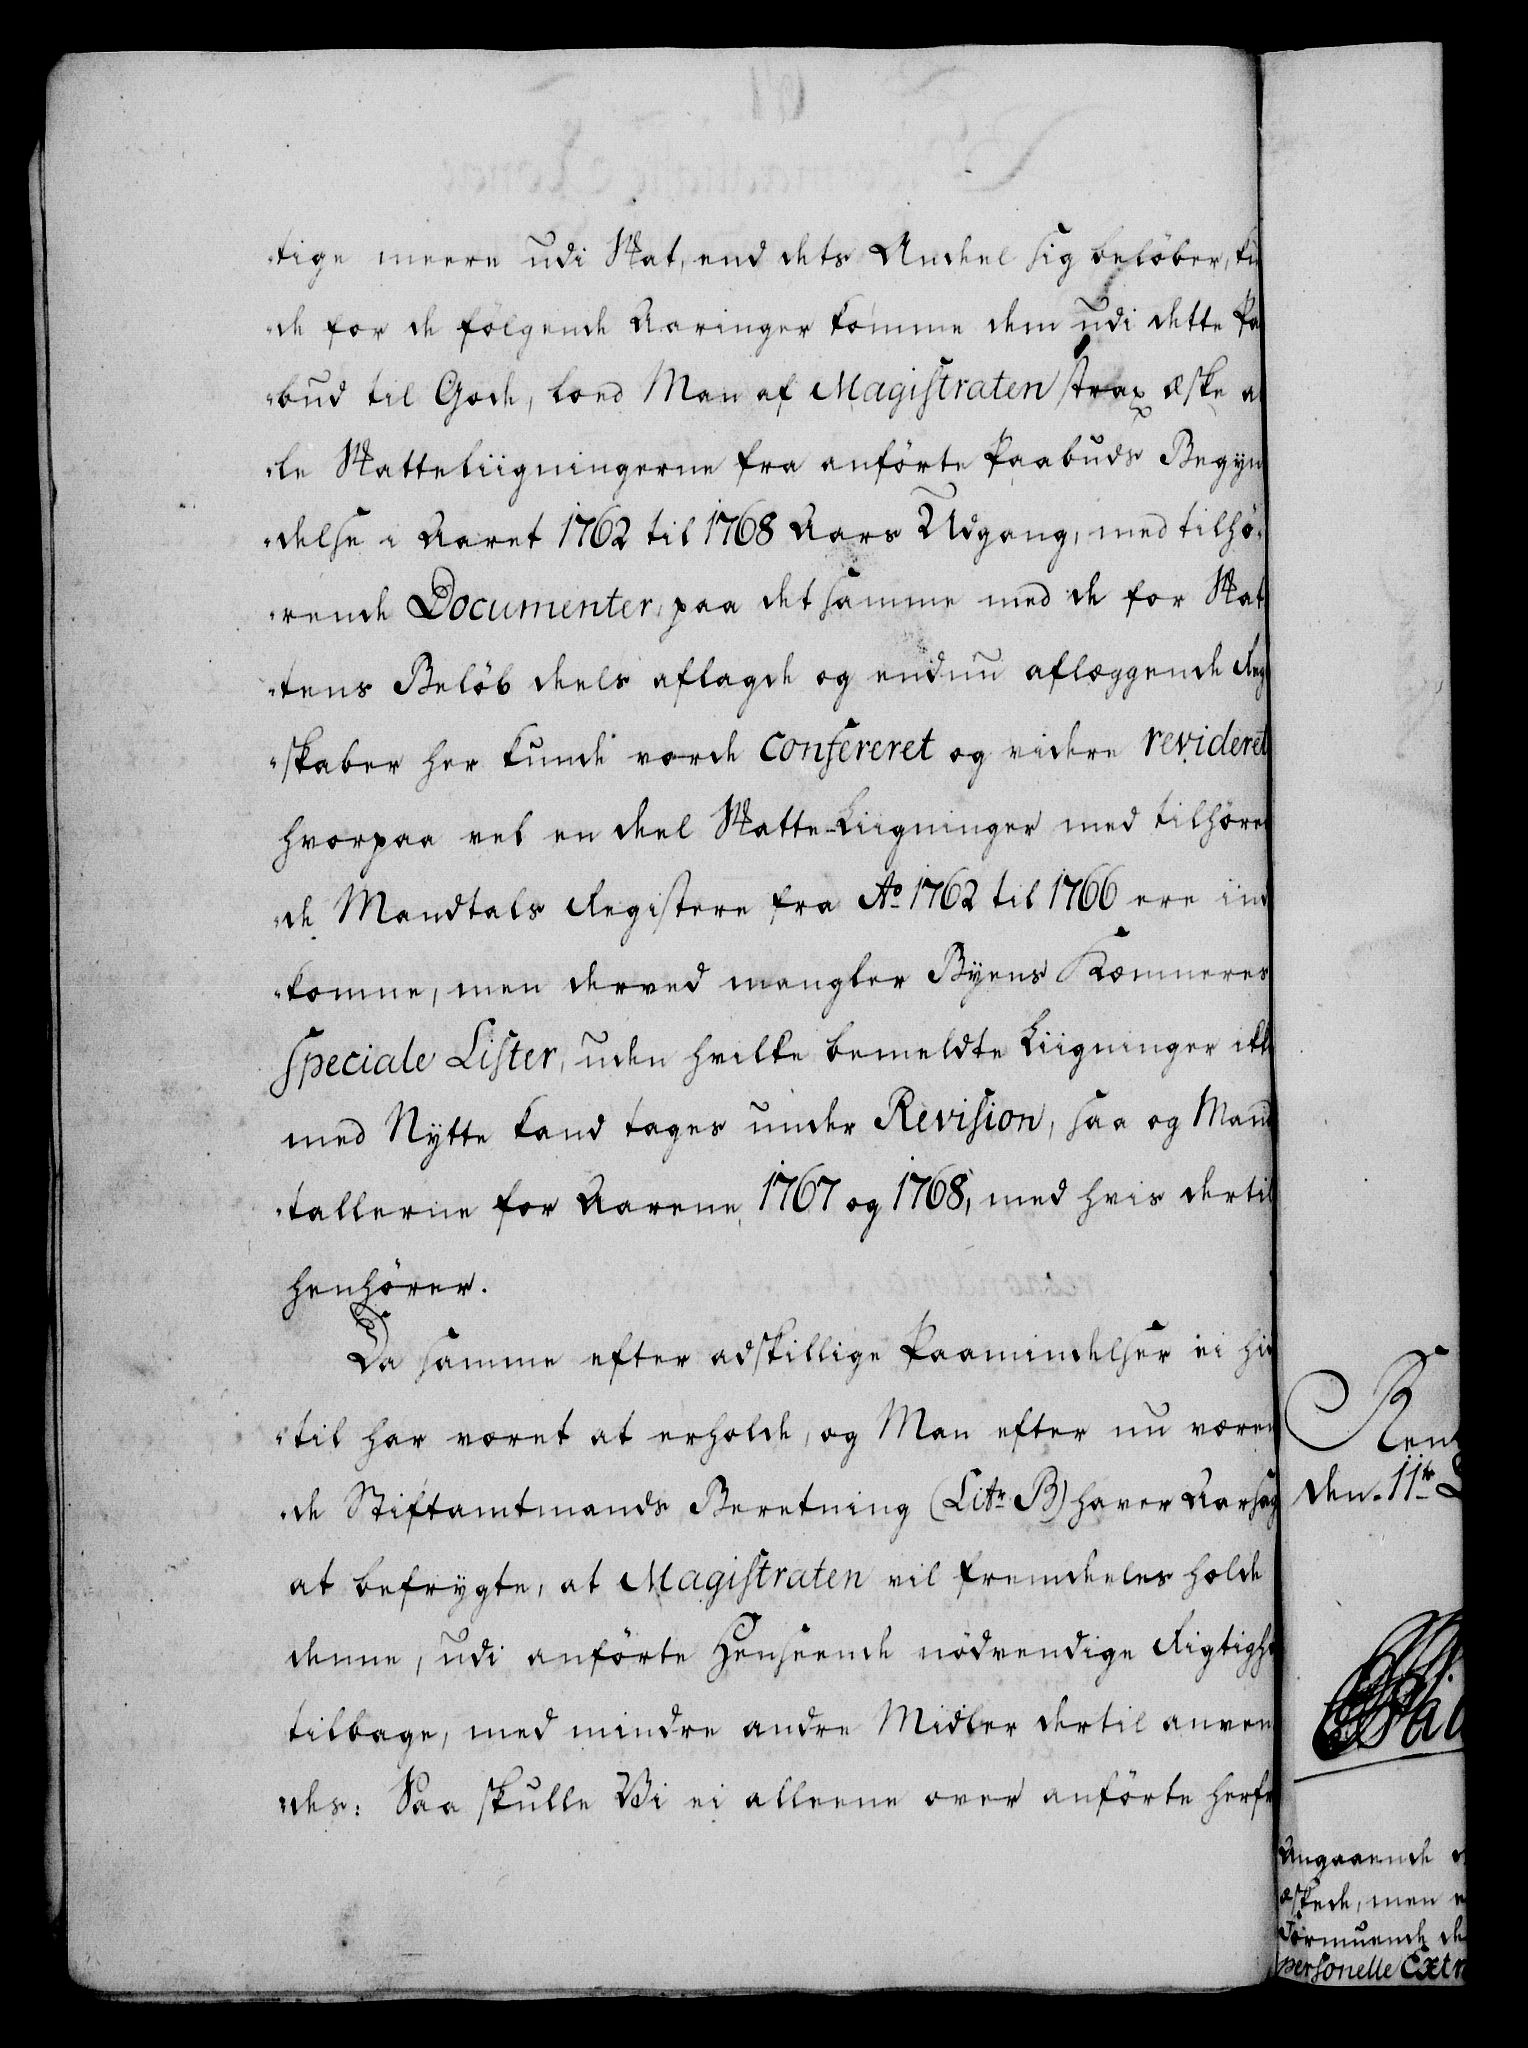 -tige meere udi Skat, end dets Andeel sig beløber, kun
-de for de følgende Aaringer komme dem udi dette Pa
-bud til Gode, lood Man af Magistraten strax æske al
-le Skatteliigningerne fra anførte Paabuds Begyn
-delse i Aaret 1762 til 1768 Aars Udgang, med tilhø-
-rende Documenter, paa det samme med de for Skat
-tens Beløb deels aflagde og endnu aflæggende Reg
-skaber her kunde vorde confereret og videre revideret
hvorpaa vel en deel Skatte-Liigninger med tilhøren
-de Mandtals Registere fra Ao 1762 til 1766 ere ind
-komne, men derved mangler Byens Kæmneres
speciale Lister, uden hvilke bemeldte Liigninger ikke
med Nytte kand tages under Revision, saa og Mand
-tallerne for Aarene 1767 og 1768, med hvis dertil
henhører.
Da samme efter adskillige Paamindelser ei hid
-til har været at erholde, og Man efter nu væren
-de Stiftamtmands Beretning (Litr B) haver Aarsag
at befrygte, at Magistraten vil fremdeeles holde
denne, udi anførte Henseende nødvendige Rigtighed
tilbage, med mindre andre Midler dertil anven
-des: Saa skulle Vi ei alleene over anførte herfr
Rent
den 11te
Angaaende
æskede, men
Formuende de
personelle Extr